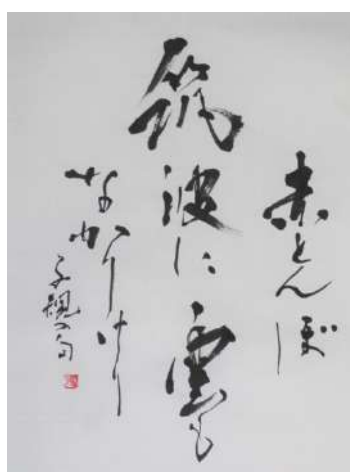 赤とんぼ
筑波に雲も
なかりけり
子規の句